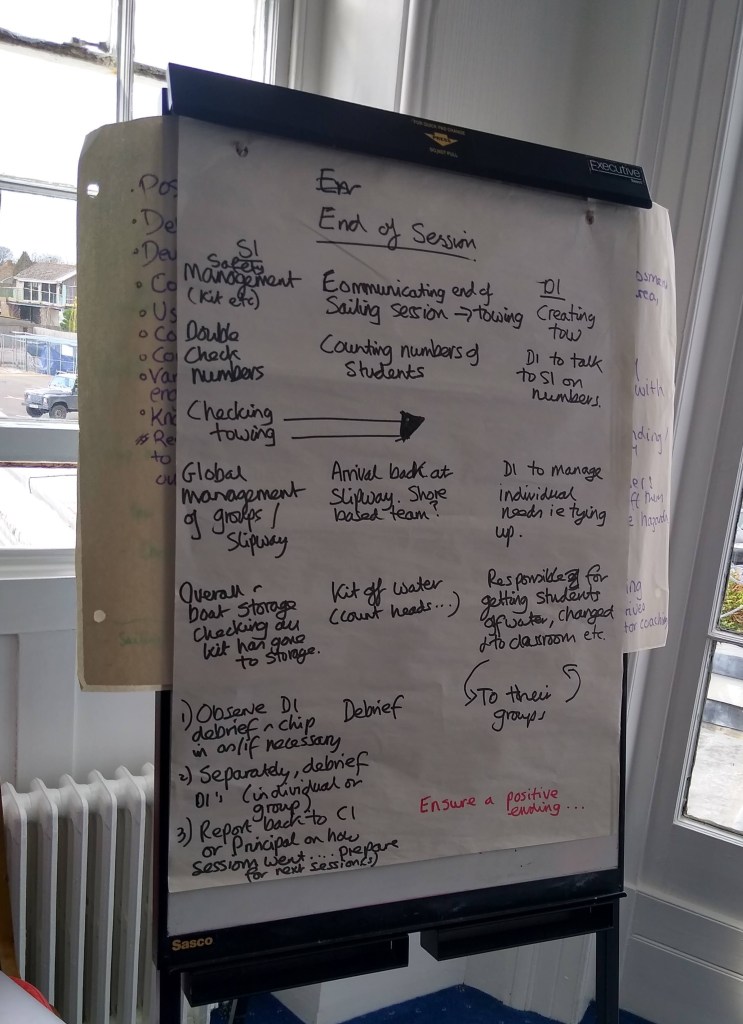 Executive
End of Session
SI
Safety
Management
(Kit etc)
Communicating end of
Sailing Session → towing
DI
Creating
tow
Double
Check
numbers
Counting numbers of
Students
DI to talk
to SI on
numbers.
Checking
towing
Global
management
of groups /
Slipway
Arrival back at
Slipway. Shore
based team?
DI to manage
individual
needs ie tying
up.
Overall -
boat storage
Checking all
kit has gone
to storage.
Kit off water
(count heads...)
Responsible for
getting students
off water, changed
to classroom etc.
To their
groups
1) Observe DI
debrief - chip
in as/if necessary
Debrief
2) Separately, debrief
DI's (individual or
group)
3) Report back to CI
or Principal on how
sessions went.... prepare
for next session(s)
Ensure a positive
ending...
Sasco
with